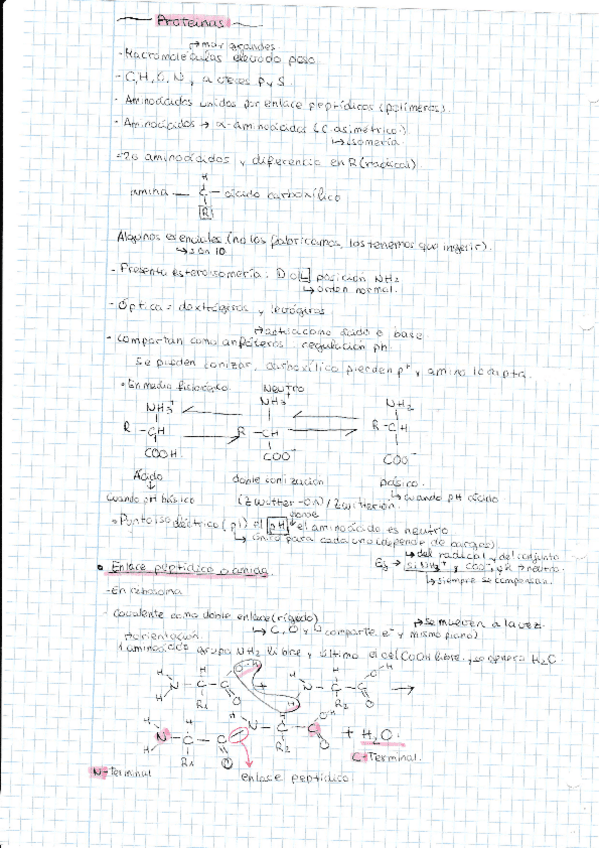 Proteínas
→ muy grandes
- Macromoléculas elevado peso
- C, H, O, N, a veces P y S.
- Aminoácidos unidos por enlace peptídicos (polímeros).
- Aminoácidos → α-aminoácidos (C asimétrico)
↳ isomería
- 20 aminoácidos y diferencia en R (radical)
H
amina — C — ácido carboxílico
R
Algunos esenciales (no los fabricamos, los tenemos que ingerir).
↳ son 10
- Presenta estereoisomería: D o L posición NH2
↳ orden normal.
- Óptica = dextrógiros y levógiros
→ actúa como ácido o base
- Comportan como anfóteros regulación pH
Se pueden ionizar, carboxílico pierden p+ y amino lo capta.
• En medio fisiológico Neutro
NH3+ NH3+ NH2
R - CH R - CH R - CH
COOH COO- COO-
Ácido doble ionización básico.
cuando pH básico (Zwitter-ón) / Zwitterión. ↳ cuando pH ácido.
• Punto isoeléctrico (pI) el pH donde el aminoácido es neutro
↳ único para cada uno (depende de cargas)
↳ del radical y del conjunto
Ej → si NH3+ y COO-, en p neutro.
↳ siempre se compensan.
• Enlace peptídico o amida.
- En ribosoma
- Covalente como doble enlace (rígido) → se mueven a la vez
↳ C, O y comparte e- y mismo plano)
Orientación.
1 aminoácido grupo NH2 libre y último el del COOH libre, se genera H2O
H H O-H H H O-H
N - C - C + N - C - C →
H R1 O H R2 O
H H H H O-H
N - C - C - N - C - C + H2O.
H R1 O R2 O
C-Terminal.
N-Terminal enlace peptídico